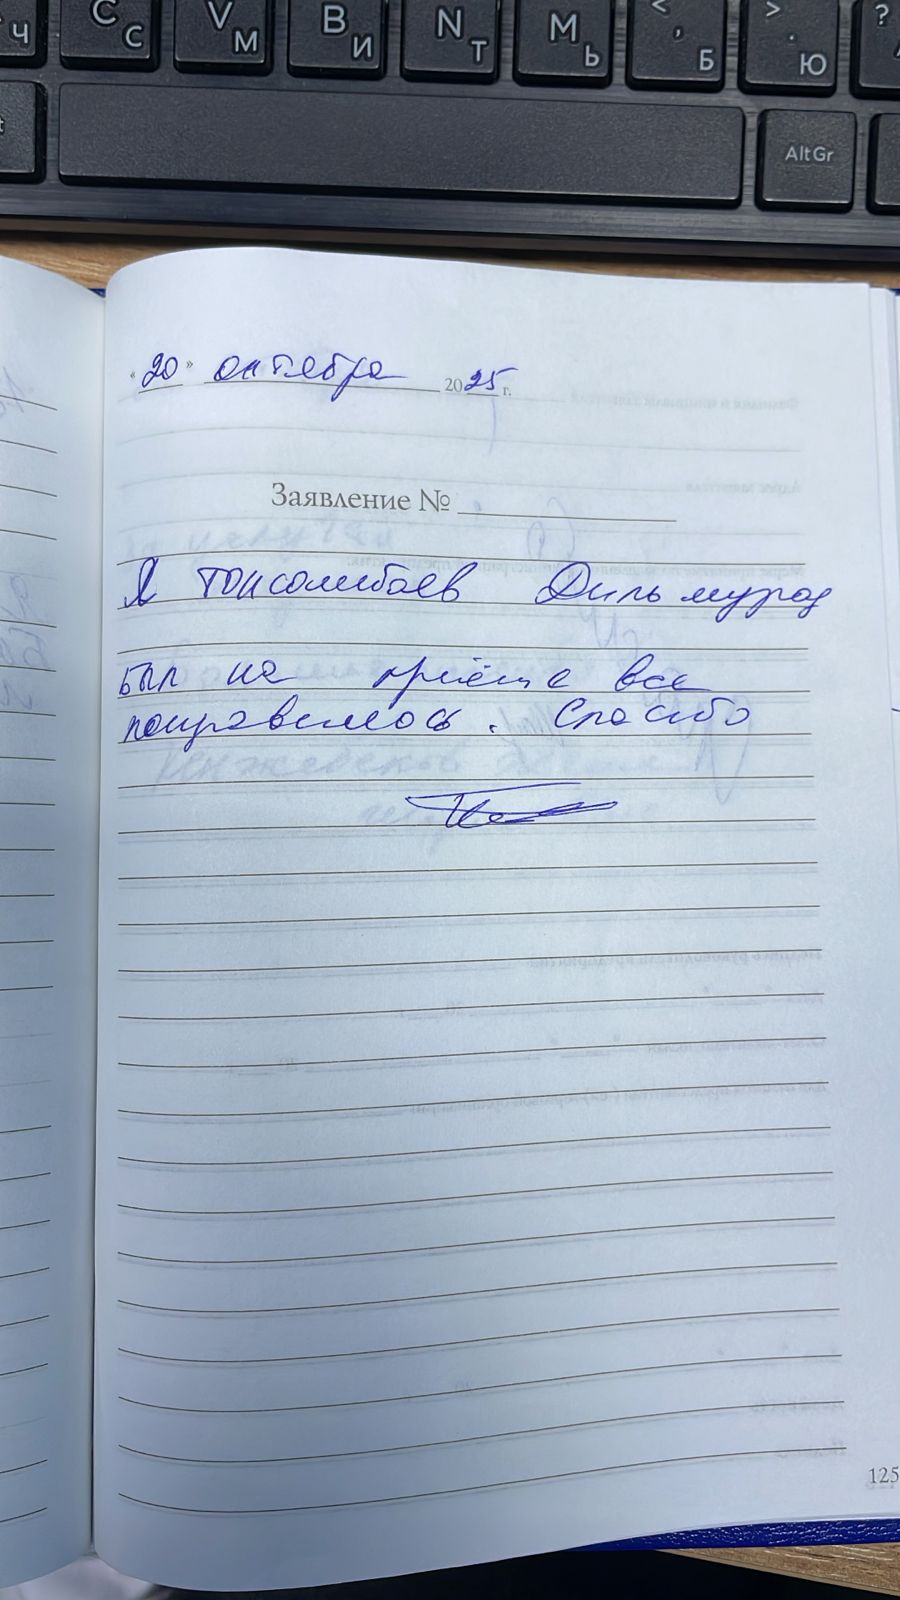 Ч C С V М B И N Т M Ь < , Б > . Ю ?
AltGr
« 20 » октября 2025 г.
Заявление № 
Я Токсомбаев Дильмурод
был на приёме все
понравилось. Спасибо
125